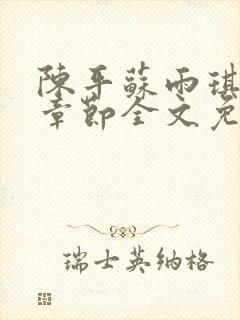 陳平蘇雨琪
章節全文免
瑞士英納格